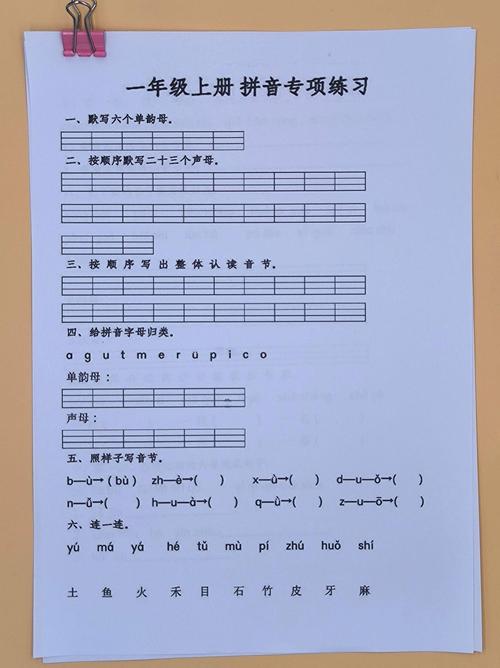 一年级上册 拼音专项练习
一、默写六个单韵母。
二、按顺序默写二十三个声母。
三、按 顺 序 写 出 整 体 认 读 音 节。
四、给拼音字母归类。
a g u t m e r ü p i c o
单韵母：
声母：
五、照样子写音节。
b—ù→（bù） zh—è→( ) x—ù→( ) d—u—ǒ→( )
n—ǚ→( ) h—u—à→( ) q—ù→( ) z—u—ō→( )
六、连一连。
yú má yá hé tǔ mù pí zhú huǒ shí
土 鱼 火 禾 目 石 竹 皮 牙 麻